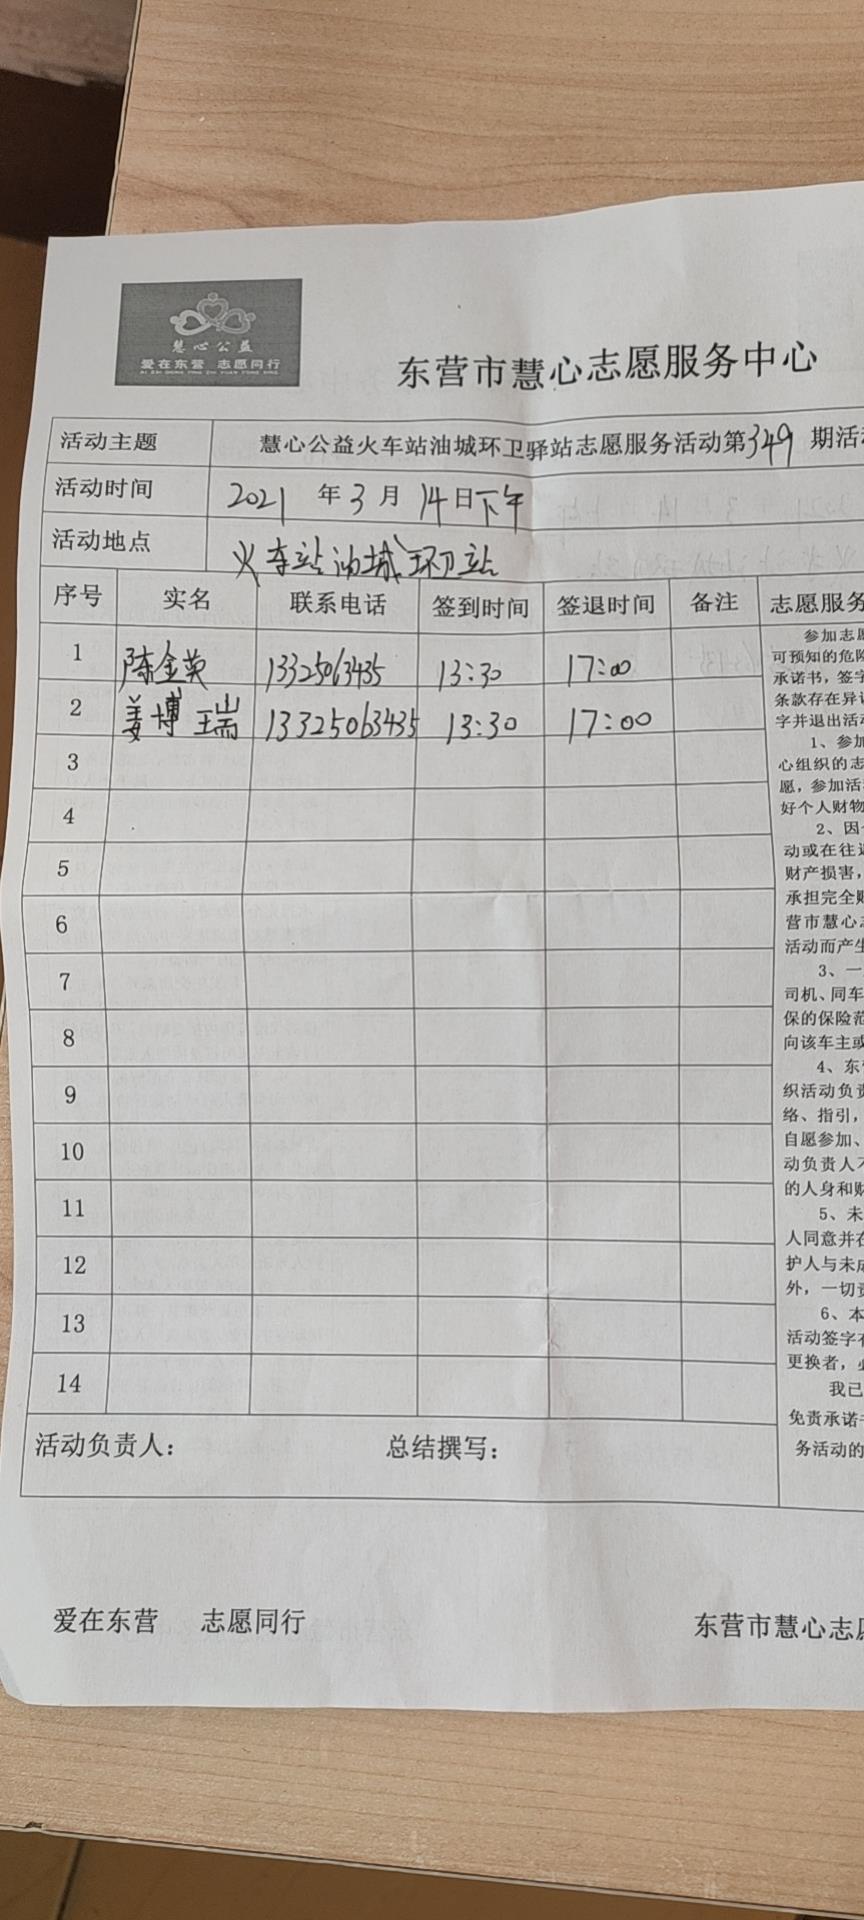 慧心公益
爱在东营 志愿同行
AI ZAI DONG YING ZHI YUAN TONG XING
东营市慧心志愿服务中心
活动主题 慧心公益火车站油城环卫驿站志愿服务活动第349期活动
活动时间 2021 年 3 月 14日下午
活动地点 火车站油城环卫站
序号 实名 联系电话 签到时间 签退时间 备注 志愿服务
1 陈金英 13325063435 13:30 17:00
2 姜博瑞 13325063435 13:30 17:00
3
4
5
6
7
8
9
10
11
12
13
14
参加志愿
可预知的危险
承诺书，签字
条款存在异议
字并退出活动
1、参加
心组织的志
愿，参加活
好个人财物
2、因
动或在往返
财产损害，
承担完全
营市慧心志
活动而产生
3、一
司机、同车
保的保险范
向该车主或
4、东营
织活动负责
络、指引，
自愿参加、
动负责人不
的人身和财
5、未
人同意并在
护人与未成
外，一切责
6、本
活动签字
更换者，必
我已
免责承诺书
务活动的
活动负责人： 总结撰写：
爱在东营 志愿同行 东营市慧心志愿